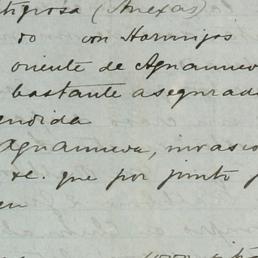 tigrosa (Anexas)
do con Hormigos
oriente de Aguanueva
bastante asegurad
endida
Aguanueva, invasio
&c. que por junto
en